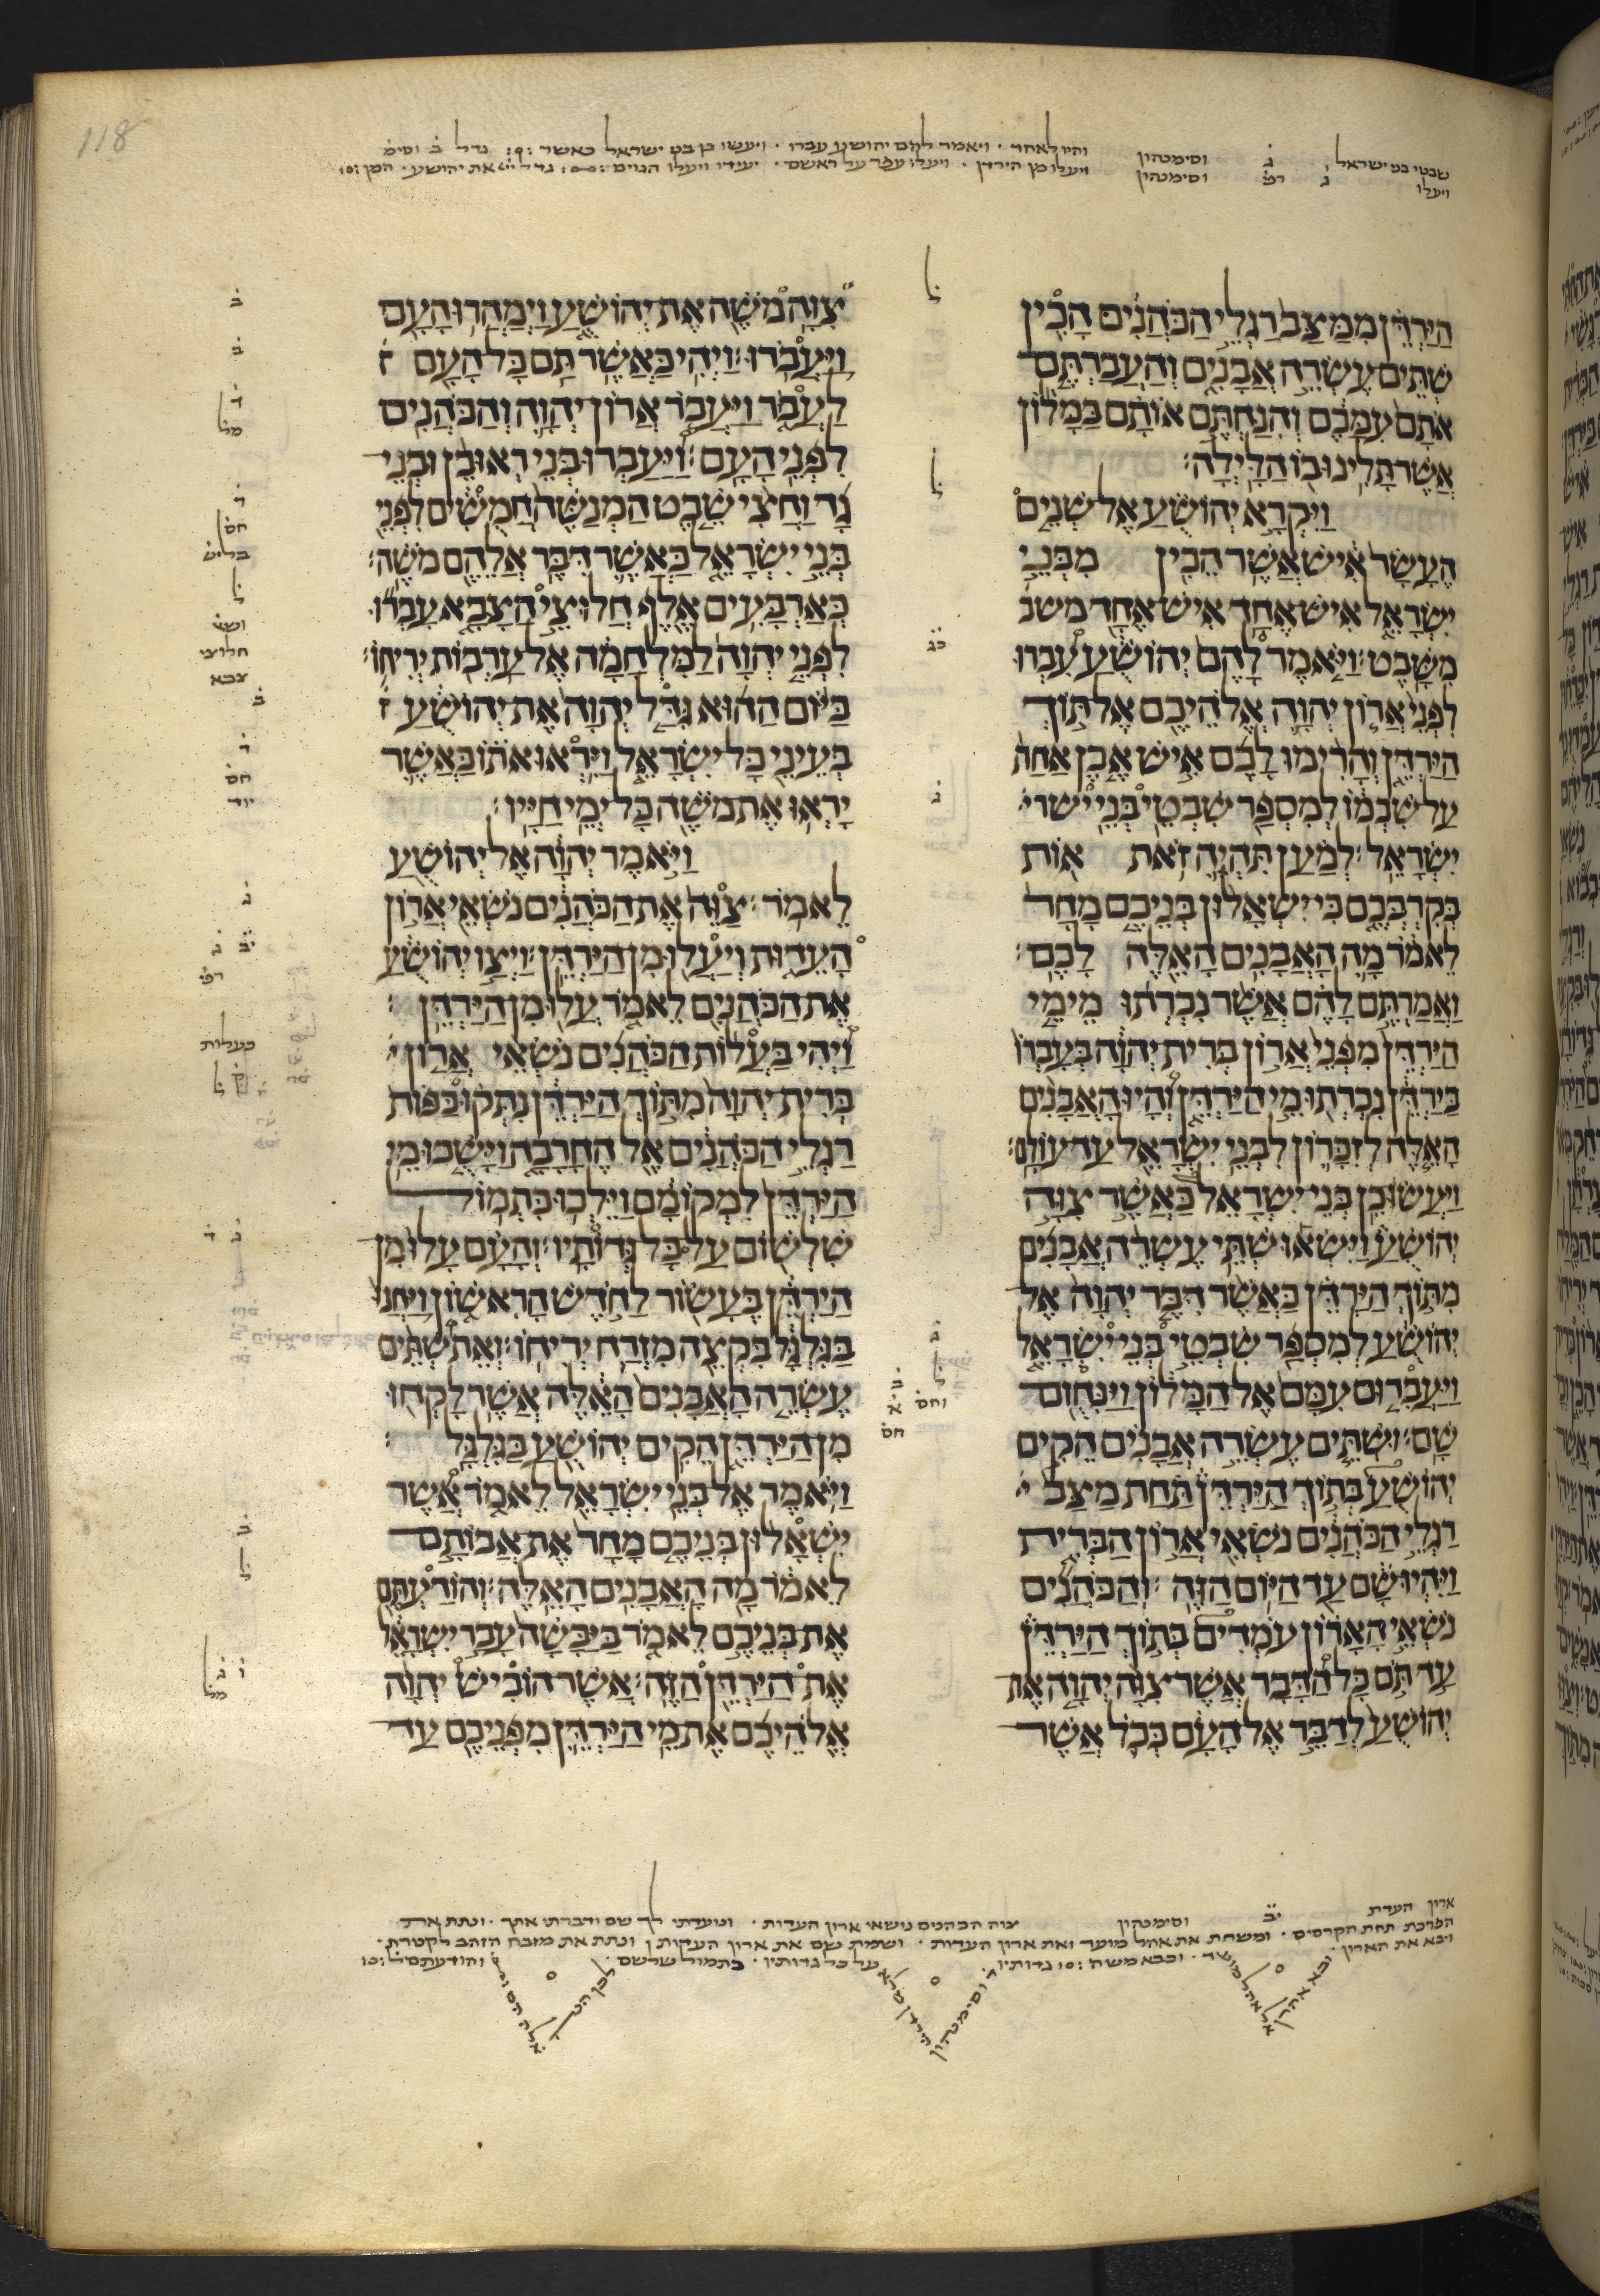 118
שבטי בני ישראל ג וסימנהון
ויעלו ג רפ וסימנהון
והיו לאחד · ויאמר להם יהושע עברו · ויעשו כן בני ישראל כאשר
ויעלו מן הירדן · ויעלו עפר על ראשם · יעידו ויעלו הגוים
הַיַּרְדֵּן מִמַּצַּב רַגְלֵי הַכֹּהֲנִים הָכִין
שְׁתֵּים עֶשְׂרֵה אֲבָנִים וְהַעֲבַרְתֶּם
אֹתָם עִמָּכֶם וְהִנַּחְתֶּם אוֹתָם בַּמָּלוֹן
אֲשֶׁר תָּלִינוּ בוֹ הַלָּיְלָה׃
וַיִּקְרָא יְהוֹשֻׁעַ אֶל שְׁנֵים
הֶעָשָׂר אִישׁ אֲשֶׁר הֵכִין מִבְּנֵי
יִשְׂרָאֵל אִישׁ אֶחָד אִישׁ אֶחָד משב
מִשָּׁבֶט׃ וַיֹּאמֶר לָהֶם יְהוֹשֻׁעַ עִבְרוּ
לִפְנֵי אֲרוֹן יְהוָה אֱלֹהֵיכֶם אֶל תּוֹךְ
הַיַּרְדֵּן וְהָרִימוּ לָכֶם אִישׁ אֶבֶן אַחַת
עַל שִׁכְמוֹ לְמִסְפַּר שִׁבְטֵי בְּנֵי ישר
יִשְׂרָאֵל׃ לְמַעַן תִּהְיֶה זֹאת אוֹת
בְּקִרְבְּכֶם כִּי יִשְׁאָלוּן בְּנֵיכֶם מָחָר
לֵאמֹר מָה הָאֲבָנִים הָאֵלֶּה לָכֶם׃
וַאֲמַרְתֶּם לָהֶם אֲשֶׁר נִכְרְתוּ מֵימֵי
הַיַּרְדֵּן מִפְּנֵי אֲרוֹן בְּרִית יְהוָה בְּעָבְרוֹ
בַּיַּרְדֵּן נִכְרְתוּ מֵי הַיַּרְדֵּן וְהָיוּ הָאֲבָנִים
הָאֵלֶּה לְזִכָּרוֹן לִבְנֵי יִשְׂרָאֵל עַד עוֹלָם׃
וַיַּעֲשׂוּ כֵן בְּנֵי יִשְׂרָאֵל כַּאֲשֶׁר צִוָּה
יְהוֹשֻׁעַ וַיִּשְׂאוּ שְׁתֵּי עֶשְׂרֵה אֲבָנִים
מִתּוֹךְ הַיַּרְדֵּן כַּאֲשֶׁר דִּבֶּר יְהוָה אֶל
יְהוֹשֻׁעַ לְמִסְפַּר שִׁבְטֵי בְּנֵי יִשְׂרָאֵל
וַיַּעֲבִרוּם עִמָּם אֶל הַמָּלוֹן וַיַּנִּחוּם
שָׁם׃ וּשְׁתֵּים עֶשְׂרֵה אֲבָנִים הֵקִים
יְהוֹשֻׁעַ בְּתוֹךְ הַיַּרְדֵּן תַּחַת מַצַּב
רַגְלֵי הַכֹּהֲנִים נֹשְׂאֵי אֲרוֹן הַבְּרִית
וַיִּהְיוּ שָׁם עַד הַיּוֹם הַזֶּה׃ וְהַכֹּהֲנִים
נֹשְׂאֵי הָאָרוֹן עֹמְדִים בְּתוֹךְ הַיַּרְדֵּן
עַד תֹּם כָּל הַדָּבָר אֲשֶׁר צִוָּה יְהוָה אֶת
יְהוֹשֻׁעַ לְדַבֵּר אֶל הָעָם כְּכֹל אֲשֶׁר
ל
ל
כג
ג
ג
ל ב
וחס א
חס
צִוָּה מֹשֶׁה אֶת יְהוֹשֻׁעַ וַיְמַהֲרוּ הָעָם
וַיַּעֲבֹרוּ׃ וַיְהִי כַּאֲשֶׁר תַּם כָּל הָעָם
לַעֲבֹר וַיַּעֲבֹר אֲרוֹן יְהוָה וְהַכֹּהֲנִים
לִפְנֵי הָעָם׃ וַיַּעַבְרוּ בְּנֵי רְאוּבֵן וּבְנֵי
גָד וַחֲצִי שֵׁבֶט הַמְנַשֶּׁה חֲמֻשִׁים לִפְנֵי
בְּנֵי יִשְׂרָאֵל כַּאֲשֶׁר דִּבֶּר אֲלֵהֶם מֹשֶׁה׃
כְּאַרְבָּעִים אֶלֶף חֲלוּצֵי הַצָּבָא עָבְרוּ
לִפְנֵי יְהוָה לַמִּלְחָמָה אֶל עַרְבוֹת יְרִיחוֹ׃
בַּיּוֹם הַהוּא גִּדַּל יְהוָה אֶת יְהוֹשֻׁעַ
בְּעֵינֵי כָּל יִשְׂרָאֵל וַיִּרְאוּ אֹתוֹ כַּאֲשֶׁר
יָרְאוּ אֶת מֹשֶׁה כָּל יְמֵי חַיָּיו׃
וַיֹּאמֶר יְהוָה אֶל יְהוֹשֻׁעַ
לֵאמֹר׃ צַוֵּה אֶת הַכֹּהֲנִים נֹשְׂאֵי אֲרוֹן
הָעֵדוּת וְיַעֲלוּ מִן הַיַּרְדֵּן׃ וַיְצַו יְהוֹשֻׁעַ
אֶת הַכֹּהֲנִים לֵאמֹר עֲלוּ מִן הַיַּרְדֵּן׃
וַיְהִי בַּעֲלוֹת הַכֹּהֲנִים נֹשְׂאֵי אֲרוֹן
בְּרִית יְהוָה מִתּוֹךְ הַיַּרְדֵּן נִתְּקוּ כַּפּוֹת
רַגְלֵי הַכֹּהֲנִים אֶל הֶחָרָבָה וַיָּשֻׁבוּ מֵי
הַיַּרְדֵּן לִמְקוֹמָם וַיֵּלְכוּ כִתְמוֹל
שִׁלְשׁוֹם עַל כָּל גְּדוֹתָיו׃ וְהָעָם עָלוּ מִן
הַיַּרְדֵּן בֶּעָשׂוֹר לַחֹדֶשׁ הָרִאשׁוֹן וַיַּחֲנוּ
בַּגִּלְגָּל בִּקְצֵה מִזְרַח יְרִיחוֹ׃ וְאֵת שְׁתֵּים
עֶשְׂרֵה הָאֲבָנִים הָאֵלֶּה אֲשֶׁר לָקְחוּ
מִן הַיַּרְדֵּן הֵקִים יְהוֹשֻׁעַ בַּגִּלְגָּל׃
וַיֹּאמֶר אֶל בְּנֵי יִשְׂרָאֵל לֵאמֹר אֲשֶׁר
יִשְׁאָלוּן בְּנֵיכֶם מָחָר אֶת אֲבוֹתָם
לֵאמֹר מָה הָאֲבָנִים הָאֵלֶּה׃ וְהוֹדַעְתֶּם
אֶת בְּנֵיכֶם לֵאמֹר בַּיַּבָּשָׁה עָבַר יִשְׂרָאֵל
אֶת הַיַּרְדֵּן הַזֶּה׃ אֲשֶׁר הוֹבִישׁ יְהוָה
אֱלֹהֵיכֶם אֶת מֵי הַיַּרְדֵּן מִפְּנֵיכֶם עַד
ב
ב
ד
מל
ד
חס
בליש
ל
חלוצי
צבא
ב
ד
חס
יוד
ג
יב ג
רפ
בעלות
ק ל
ג ד
ב
ל
ו ג
מל
ארון העדת יב וסימנהון צוה הכהנים נושאי ארון העדות · ונועדתי לך שם ודברתי אתך · ונתת את
הפרכת תחת הקרסים · ומשחת את אהל מועד ואת ארון העדות · ושמית שם את ארון העדות ונתת את מזבח הזהב לקטורת ·
ויבא את הארון · ובבא משה · גדותיו · על כל גדותיו · כתמול שלשם · והודעתם